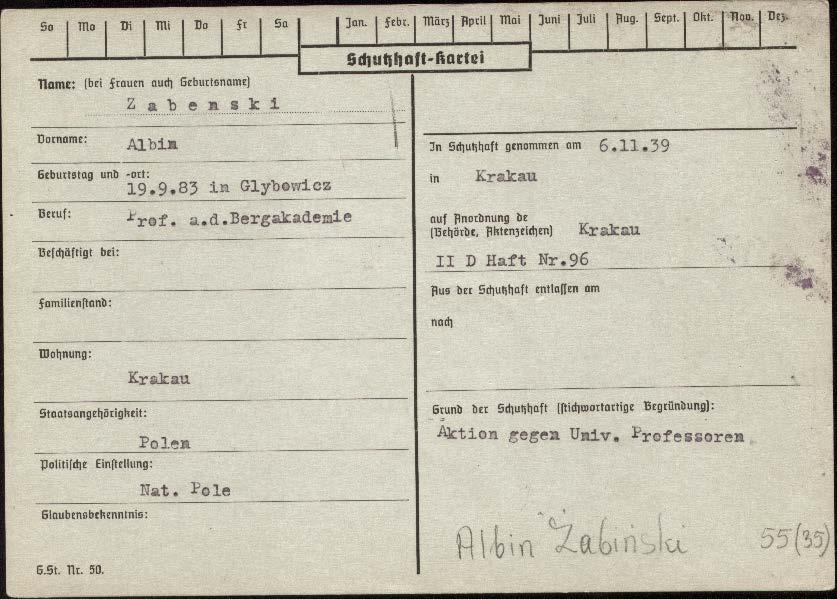 So Mo Di Mi Do Fr Sa Jan. Febr. März April Mai Juni Juli Aug. Sept. Okt. Nov. Dez.
Schutzhaft-Kartei
Name: (bei Frauen auch Geburtsname)
Zabenski
Vorname:
Albin
Geburtstag und -ort:
19.9.83 in Glybowicz
Beruf:
Prof. a.d.Bergakademie
Beschäftigt bei:
Familienstand:
Wohnung:
Krakau
Staatsangehörigkeit:
Polen
Politische Einstellung:
Nat. Pole
Glaubensbekenntnis:
G.St. Nr. 50.
In Schutzhaft genommen am 6.11.39
in Krakau
auf Anordnung de
(Behörde, Aktenzeichen) Krakau
II D Haft Nr.96
Aus der Schutzhaft entlassen am
nach
Grund der Schutzhaft (stichwortartige Begründung):
Aktion gegen Univ. Professoren
Albin Żabiński 55(35)